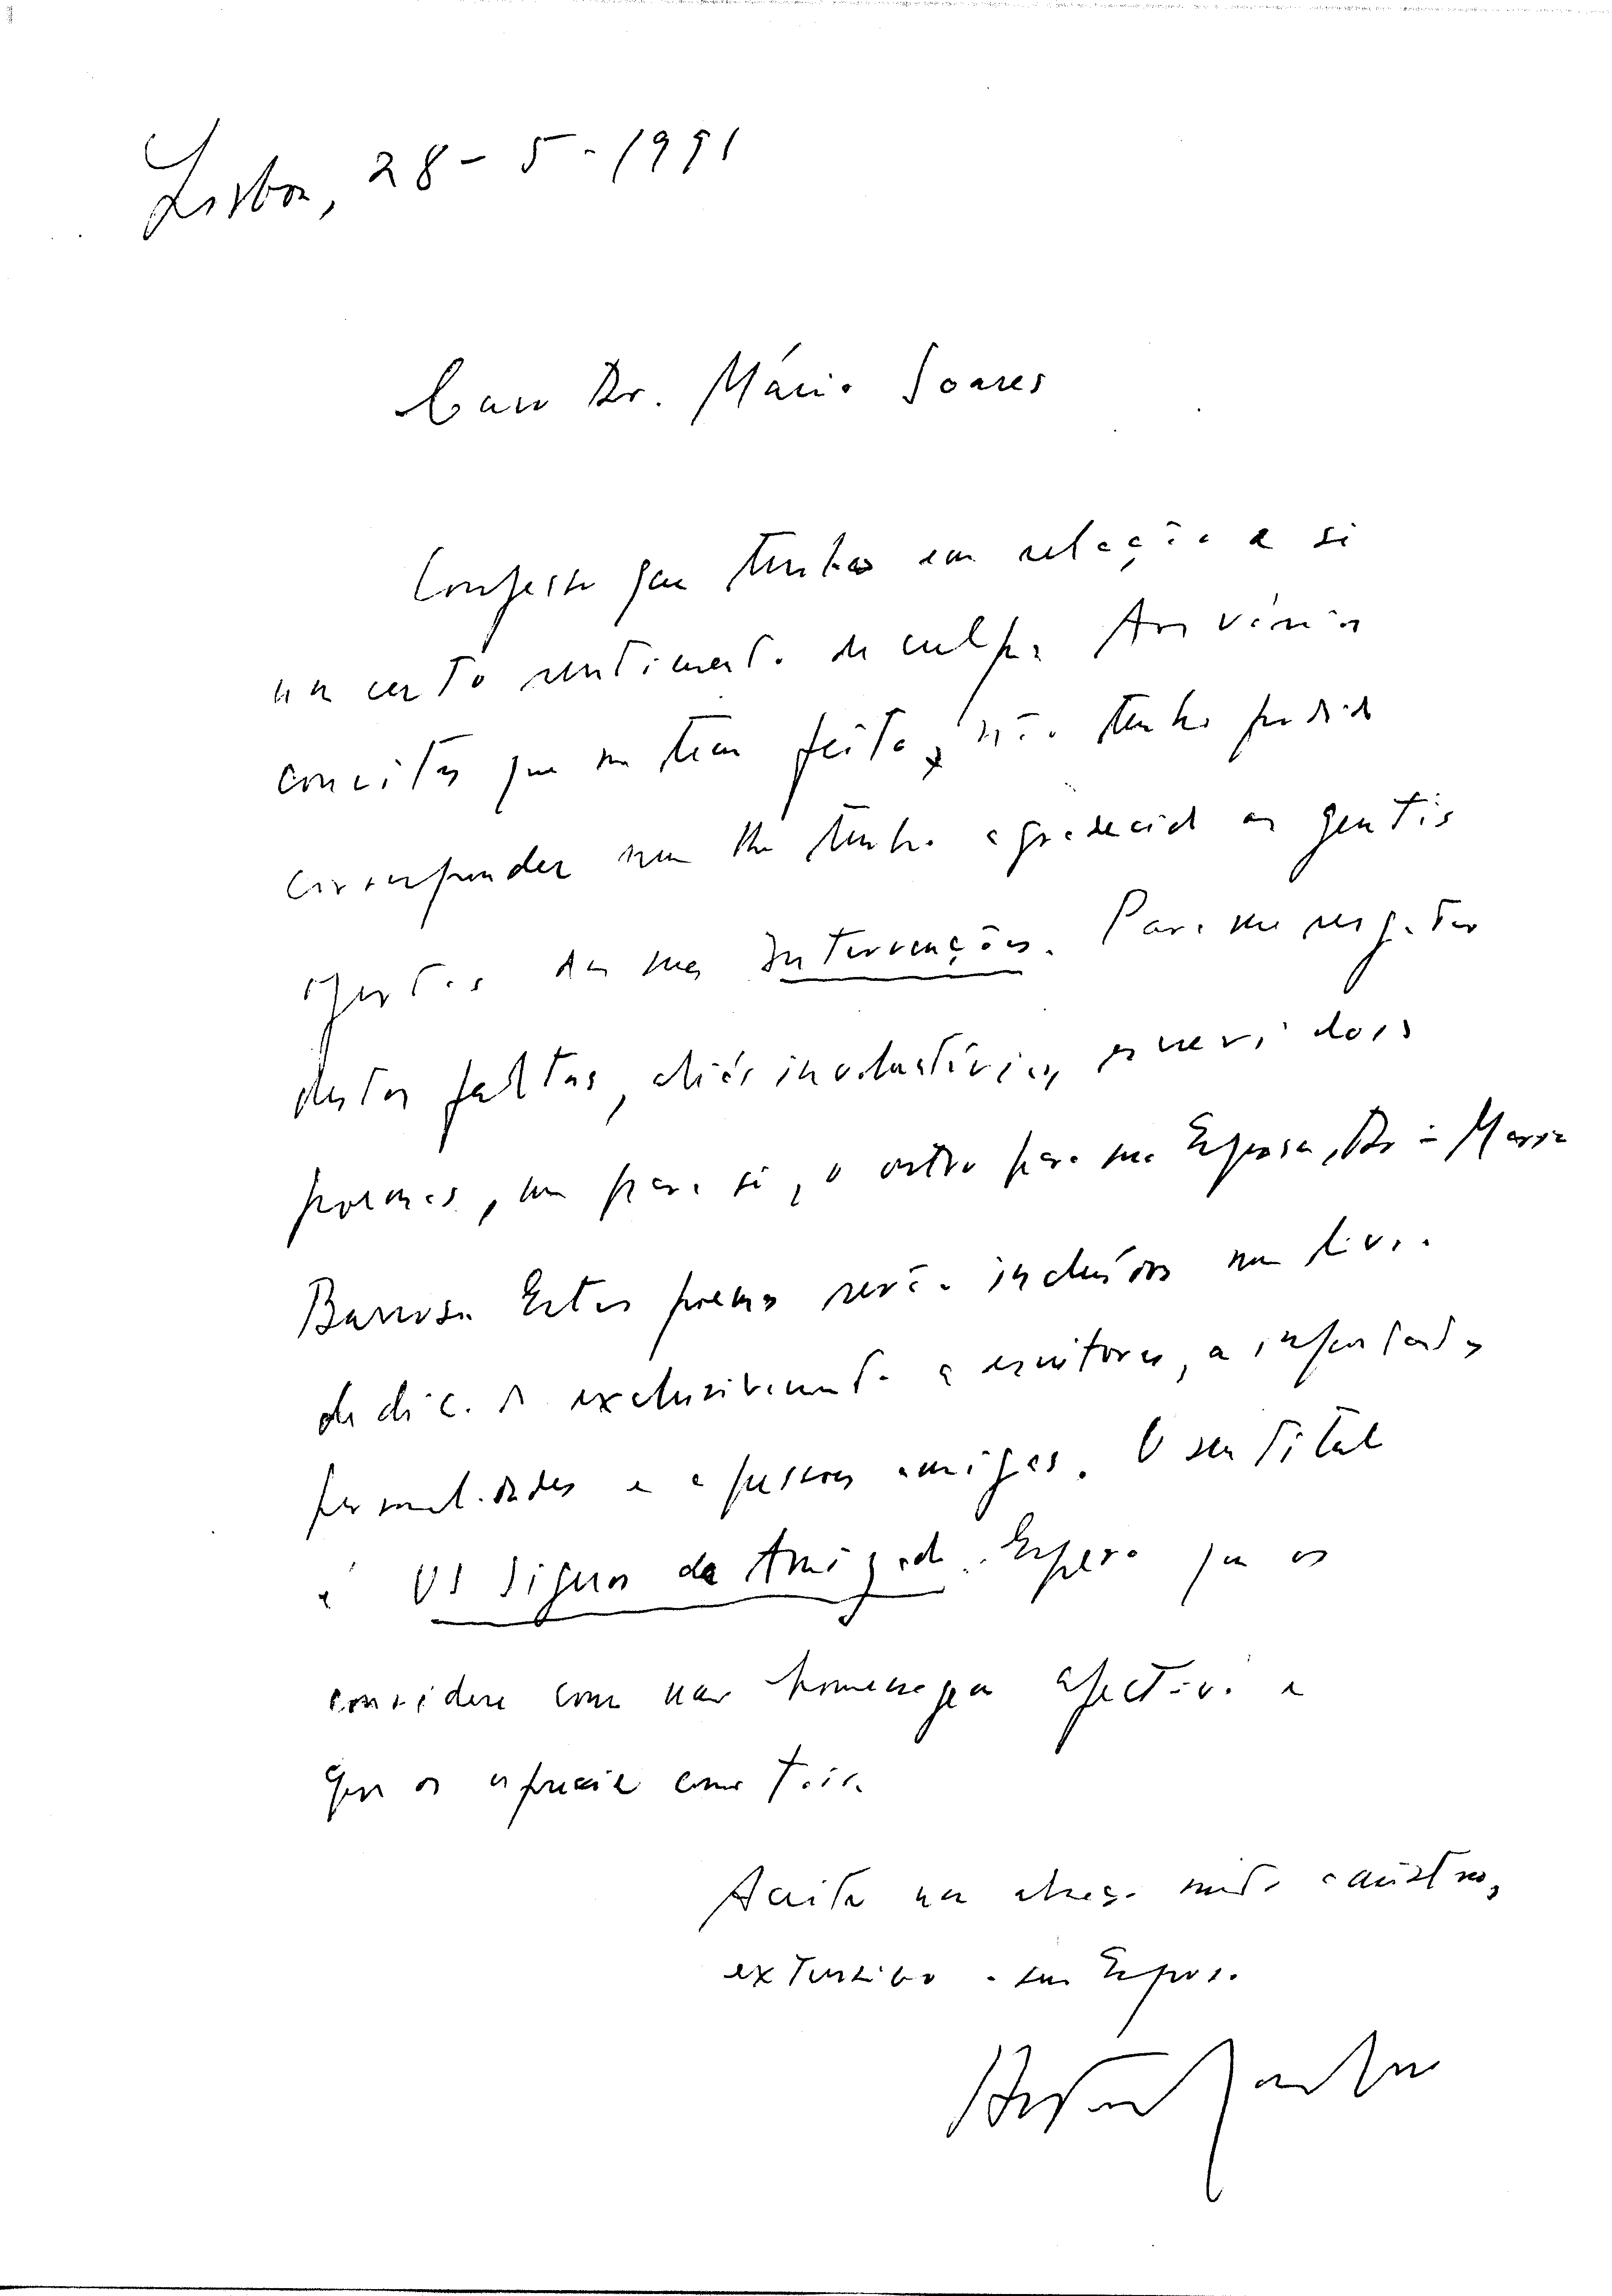 Lisboa, 28-5-1991
Caro Dr. Mário Soares
Confesso que tenho em relação a si
um certo sentimento de culpa. Aos vários
convites que me tem feito, não tenho podido
corresponder nem lhe tenho agradecido as gentis
ofertas das suas Intervenções. Para me resgatar
destas faltas, aliás involuntárias, escrevi dois
poemas, um para si, o outro para sua Esposa, Dr.ª Maria
Barroso. Estes poemas serão incluídos num livro
dedicado exclusivamente a escritores, a importantes
personalidades e a pessoas amigas. O seu título
é Os Signos da Amizade. Espero que os
considere como uma homenagem afectiva e
que os aprecie como tais.
Aceite um abraço muito
extensivo a sua Esposa